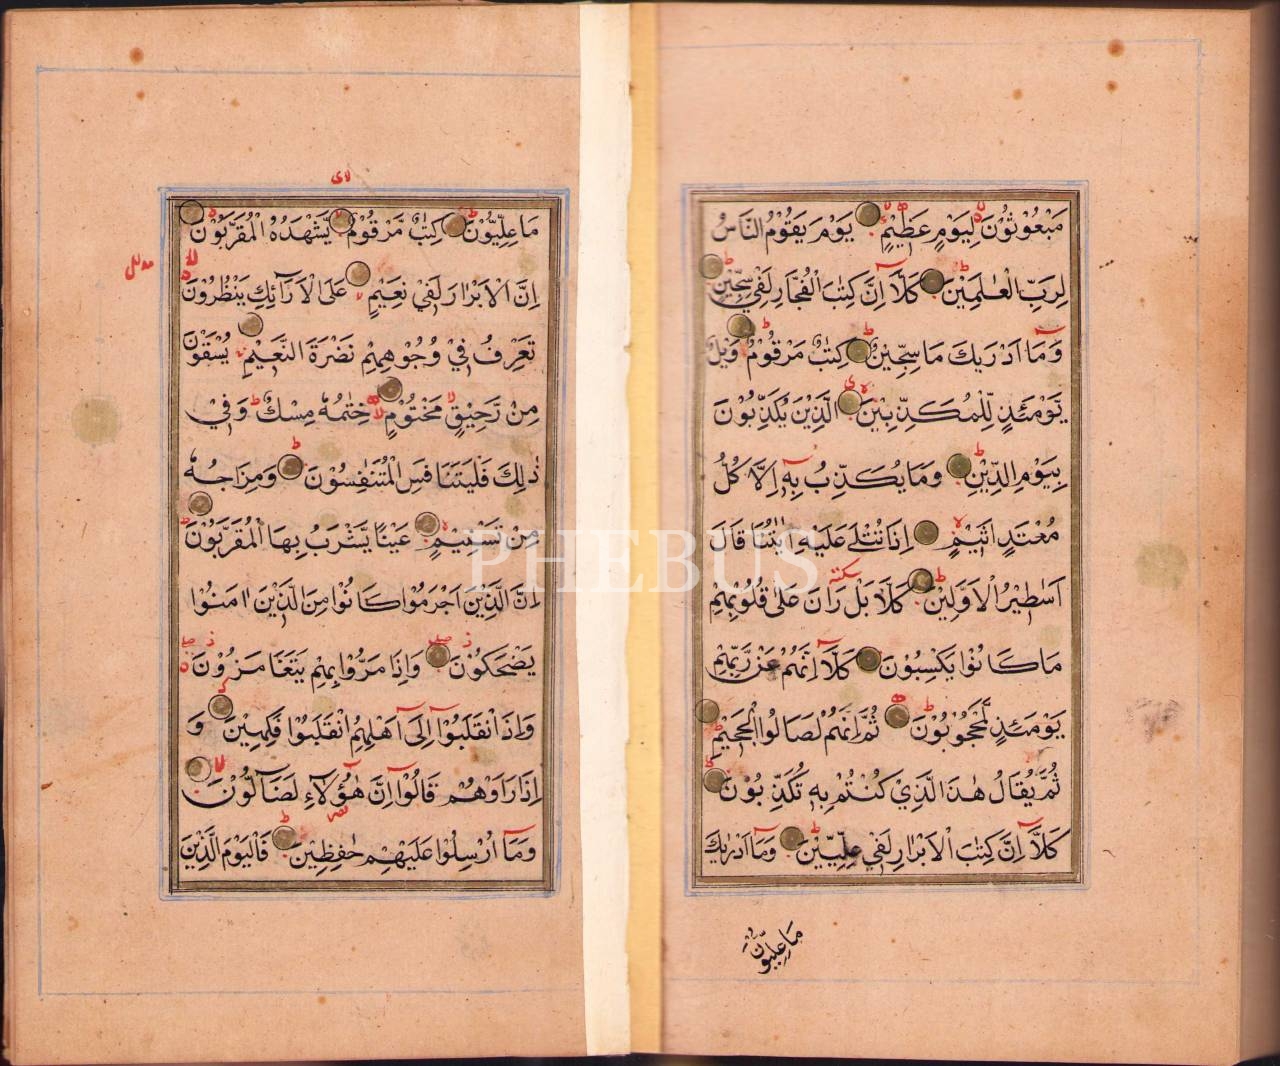 مَبْعُوْثُوْنَ لِيَوْمٍ عَظِيْمٍ يَوْمَ يَقُوْمُ النَّاسُ
لِرَبِّ الْعٰلَمِيْنَ كَلَّاۤ اِنَّ كِتٰبَ الْفُجَّارِ لَفِيْ سِجِّيْنٍ
وَمَاۤ اَدْرٰىكَ مَا سِجِّيْنٌ كِتٰبٌ مَرْقُوْمٌ وَيْلٌ
يَّوْمَئِذٍ لِّلْمُكَذِّبِيْنَ الَّذِيْنَ يُكَذِّبُوْنَ
بِيَوْمِ الدِّيْنِ وَمَا يُكَذِّبُ بِهٖۤ اِلَّا كُلُّ
مُعْتَدٍ اَثِيْمٍ اِذَا تُتْلٰى عَلَيْهِ اٰيٰتُنَا قَالَ
اَسَاطِيْرُ الْاَوَّلِيْنَ كَلَّا بَلْ سكتة رَانَ عَلٰى قُلُوْبِهِمْ
مَا كَانُوْا يَكْسِبُوْنَ كَلَّاۤ اِنَّهُمْ عَنْ رَبِّهِمْ
يَوْمَئِذٍ لَّمَحْجُوْبُوْنَ ثُمَّ اِنَّهُمْ لَصَالُوا الْجَحِيْمِ
ثُمَّ يُقَالُ هٰذَا الَّذِيْ كُنْتُمْ بِهٖ تُكَذِّبُوْنَ
كَلَّاۤ اِنَّ كِتٰبَ الْاَبْرَارِ لَفِيْ عِلِّيِّيْنَ وَمَاۤ اَدْرٰىكَ
مَا عِلِّيُّوْنَ
مَا عِلِّيُّوْنَ كِتٰبٌ مَّرْقُوْمٌ يَّشْهَدُهُ الْمُقَرَّبُوْنَ
اِنَّ الْاَبْرَارَ لَفِيْ نَعِيْمٍ عَلَى الْاَرَآئِكِ يَنْظُرُوْنَ
تَعْرِفُ فِيْ وُجُوْهِهِمْ نَضْرَةَ النَّعِيْمِ يُسْقَوْنَ
مِنْ رَّحِيْقٍ مَخْتُوْمٍ خِتٰمُهٗ مِسْكٌ وَفِيْ
ذٰلِكَ فَلْيَتَنَافَسِ الْمُتَنٰفِسُوْنَ وَمِزَاجُهٗ
مِنْ تَسْنِيْمٍ عَيْنًا يَّشْرَبُ بِهَا الْمُقَرَّبُوْنَ
اِنَّ الَّذِيْنَ اَجْرَمُوْا كَانُوْا مِنَ الَّذِيْنَ اٰمَنُوْا
يَضْحَكُوْنَ وَاِذَا مَرُّوْا بِهِمْ يَتَغَامَزُوْنَ
وَاِذَا انْقَلَبُوْۤا اِلٰۤى اَهْلِهِمُ انْقَلَبُوْا فَكِهِيْنَ وَ
اِذَا رَاَوْهُمْ قَالُوْۤا اِنَّ هٰۤؤُلَاۤءِ لَضَآلُّوْنَ
وَمَاۤ اُرْسِلُوْا عَلَيْهِمْ حٰفِظِيْنَ فَالْيَوْمَ الَّذِيْنَ
PHEBUS